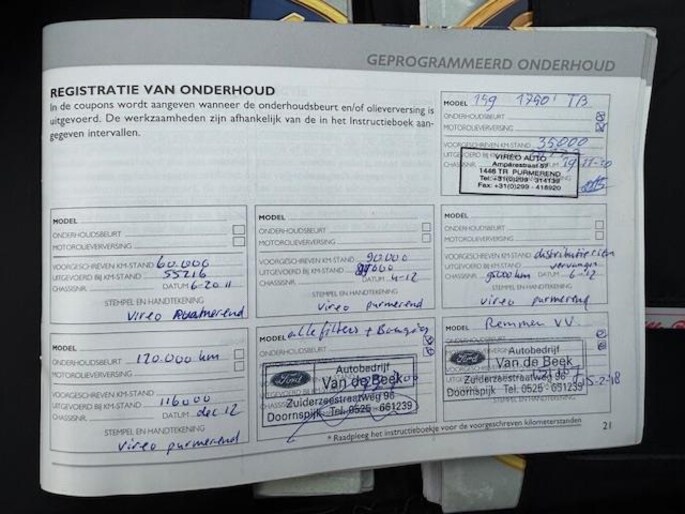 GEPROGRAMMEERD ONDERHOUD
REGISTRATIE VAN ONDERHOUD
In de coupons wordt aangeven wanneer de onderhoudsbeurt en/of olieverversing is
uitgevoerd. De werkzaamheden zijn afhankelijk van de in het Instructieboek aan-
gegeven intervallen.
MODEL 159 1750' TB
ONDERHOUDSBEURT
MOTOROLIEVERVERSING
VOORGESCHREVEN KM-STAND 35000
UITGEVOERD BIJ KM-STAND
CHASSISNR.
VIREO AUTO
Ampèrestraat 57
1446 TR PURMEREND
Tel: +31(0)299 - 314139
Fax: +31(0)299 - 416920
MODEL
ONDERHOUDSBEURT
MOTOROLIEVERVERSING
VOORGESCHREVEN KM-STAND 60.000
UITGEVOERD BIJ KM-STAND 55216
CHASSISNR. DATUM 6-2011
STEMPEL EN HANDTEKENING
Vireo Purmerend
MODEL
ONDERHOUDSBEURT
MOTOROLIEVERVERSING
VOORGESCHREVEN KM-STAND 90.000
UITGEVOERD BIJ KM-STAND
CHASSISNR. DATUM 4-12
STEMPEL EN HANDTEKENING
Vireo purmerend
MODEL
ONDERHOUDSBEURT
MOTOROLIEVERVERSING
VOORGESCHREVEN KM-STAND distributieriem
UITGEVOERD BIJ KM-STAND vervangen
CHASSISNR. km DATUM 6-12
STEMPEL EN HANDTEKENING
Vireo purmerend
MODEL
ONDERHOUDSBEURT 120.000 km
MOTOROLIEVERVERSING
VOORGESCHREVEN KM-STAND
UITGEVOERD BIJ KM-STAND 116000
CHASSISNR. DATUM dec 12
STEMPEL EN HANDTEKENING
Vireo purmerend
MODEL alle filters + Bougies
ONDERHOUDSBEURT
Ford
Autobedrijf
Van de Beek
Zuiderzeestraatweg 96
Doornspijk Tel. 0525 - 661239
MODEL Remmen VV.
ONDERHOUDSBEURT
Ford
Autobedrijf
Van de Beek
Zuiderzeestraatweg 96
Doornspijk Tel. 0525 - 661239
15-2-18
* Raadpleeg het instructieboekje voor de voorgeschreven kilometerstanden
21